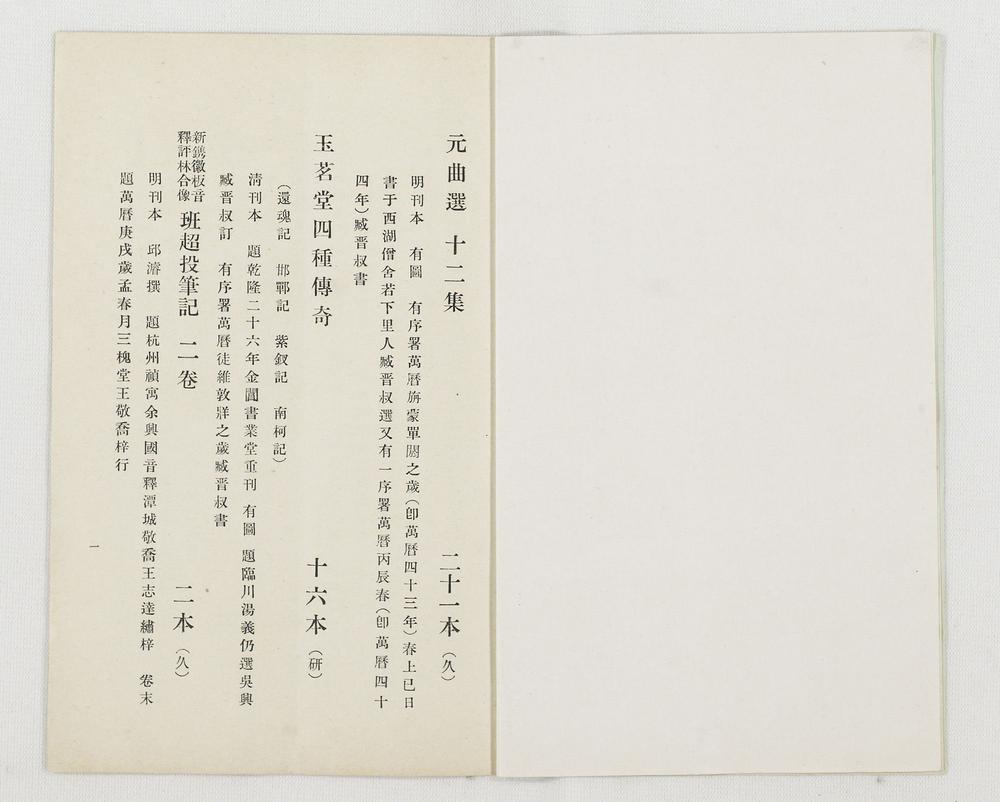 元曲選　十二集　二十一本（久）
明刊本　有圖　有序署萬曆旃蒙單閼之歲（卽萬曆四十三年）春上巳日
書于西湖僧舍若下里人臧晉叔選又有一序署萬曆丙辰春（卽萬曆四十
四年）臧晉叔書
玉茗堂四種傳奇　十六本（研）
（還魂記　邯鄲記　紫釵記　南柯記）
淸刊本　題乾隆二十六年金閶書業堂重刊　有圖　題臨川湯義仍選吳興
臧晉叔訂　有序署萬曆徒維敦牂之歲臧晉叔書
新鐫徽板音
釋評林合像
班超投筆記　二卷　二本（久）
明刊本　邱濬撰　題杭州禎寓余興國音釋潭城敬喬王志達繡梓　卷末
題萬曆庚戌歲孟春月三槐堂王敬喬梓行
一